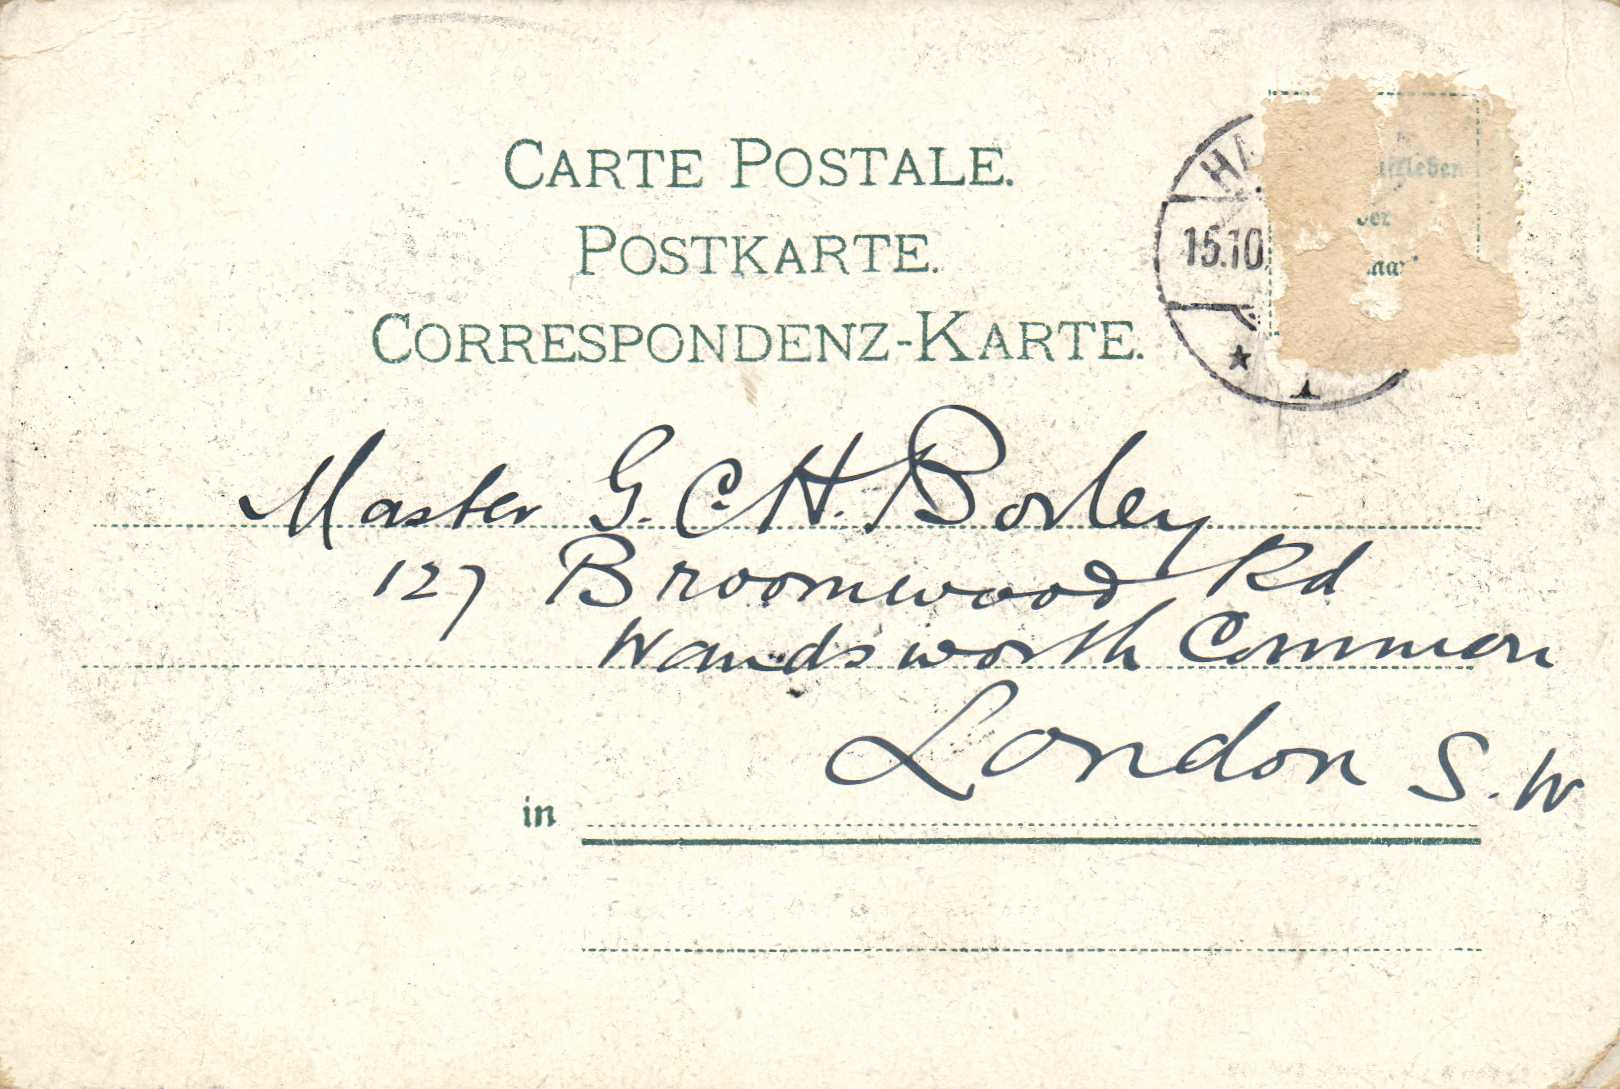 CARTE POSTALE.
POSTKARTE.
CORRESPONDENZ-KARTE.
15.10
Master G. C. H. Borley
127 Broomwood Rd
Wandsworth Common
London S. W
in